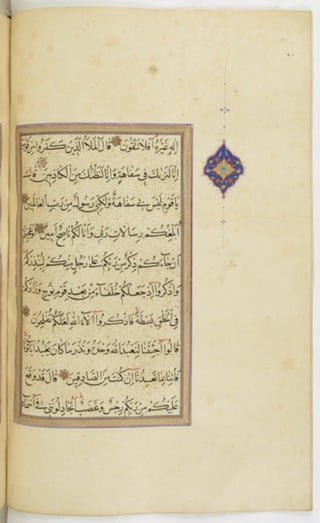 إِلَهٍ غَيْرُهُ أَفَلَا تَتَّقُونَ قَالَ الْمَلَأُ الَّذِينَ كَفَرُوا مِن قَوْمِهِ
إِنَّا لَنَرَاكَ فِي سَفَاهَةٍ وَإِنَّا لَنَظُنُّكَ مِنَ الْكَاذِبِينَ قَالَ
يَا قَوْمِ لَيْسَ بِي سَفَاهَةٌ وَلَكِنِّي رَسُولٌ مِن رَبِّ الْعَالَمِينَ
أُبَلِّغُكُمْ رِسَالَاتِ رَبِّي وَأَنَا لَكُمْ نَاصِحٌ أَمِينٌ أَوَعَجِبْتُمْ
أَن جَاءَكُمْ ذِكْرٌ مِن رَبِّكُمْ عَلَى رَجُلٍ مِنكُمْ لِيُنذِرَكُمْ
وَاذْكُرُوا إِذْ جَعَلَكُمْ خُلَفَاءَ مِن بَعْدِ قَوْمِ نُوحٍ وَزَادَكُمْ
فِي الْخَلْقِ بَسْطَةً فَاذْكُرُوا آلَاءَ اللَّهِ لَعَلَّكُمْ تُفْلِحُونَ
قَالُوا أَجِئْتَنَا لِنَعْبُدَ اللَّهَ وَحْدَهُ وَنَذَرَ مَا كَانَ يَعْبُدُ آبَاؤُنَا
فَأْتِنَا بِمَا تَعِدُنَا إِن كُنتَ مِنَ الصَّادِقِينَ قَالَ قَدْ وَقَعَ
عَلَيْكُمْ مِن رَبِّكُمْ رِجْسٌ وَغَضَبٌ أَتُجَادِلُونَنِي فِي أَسْمَاءٍ